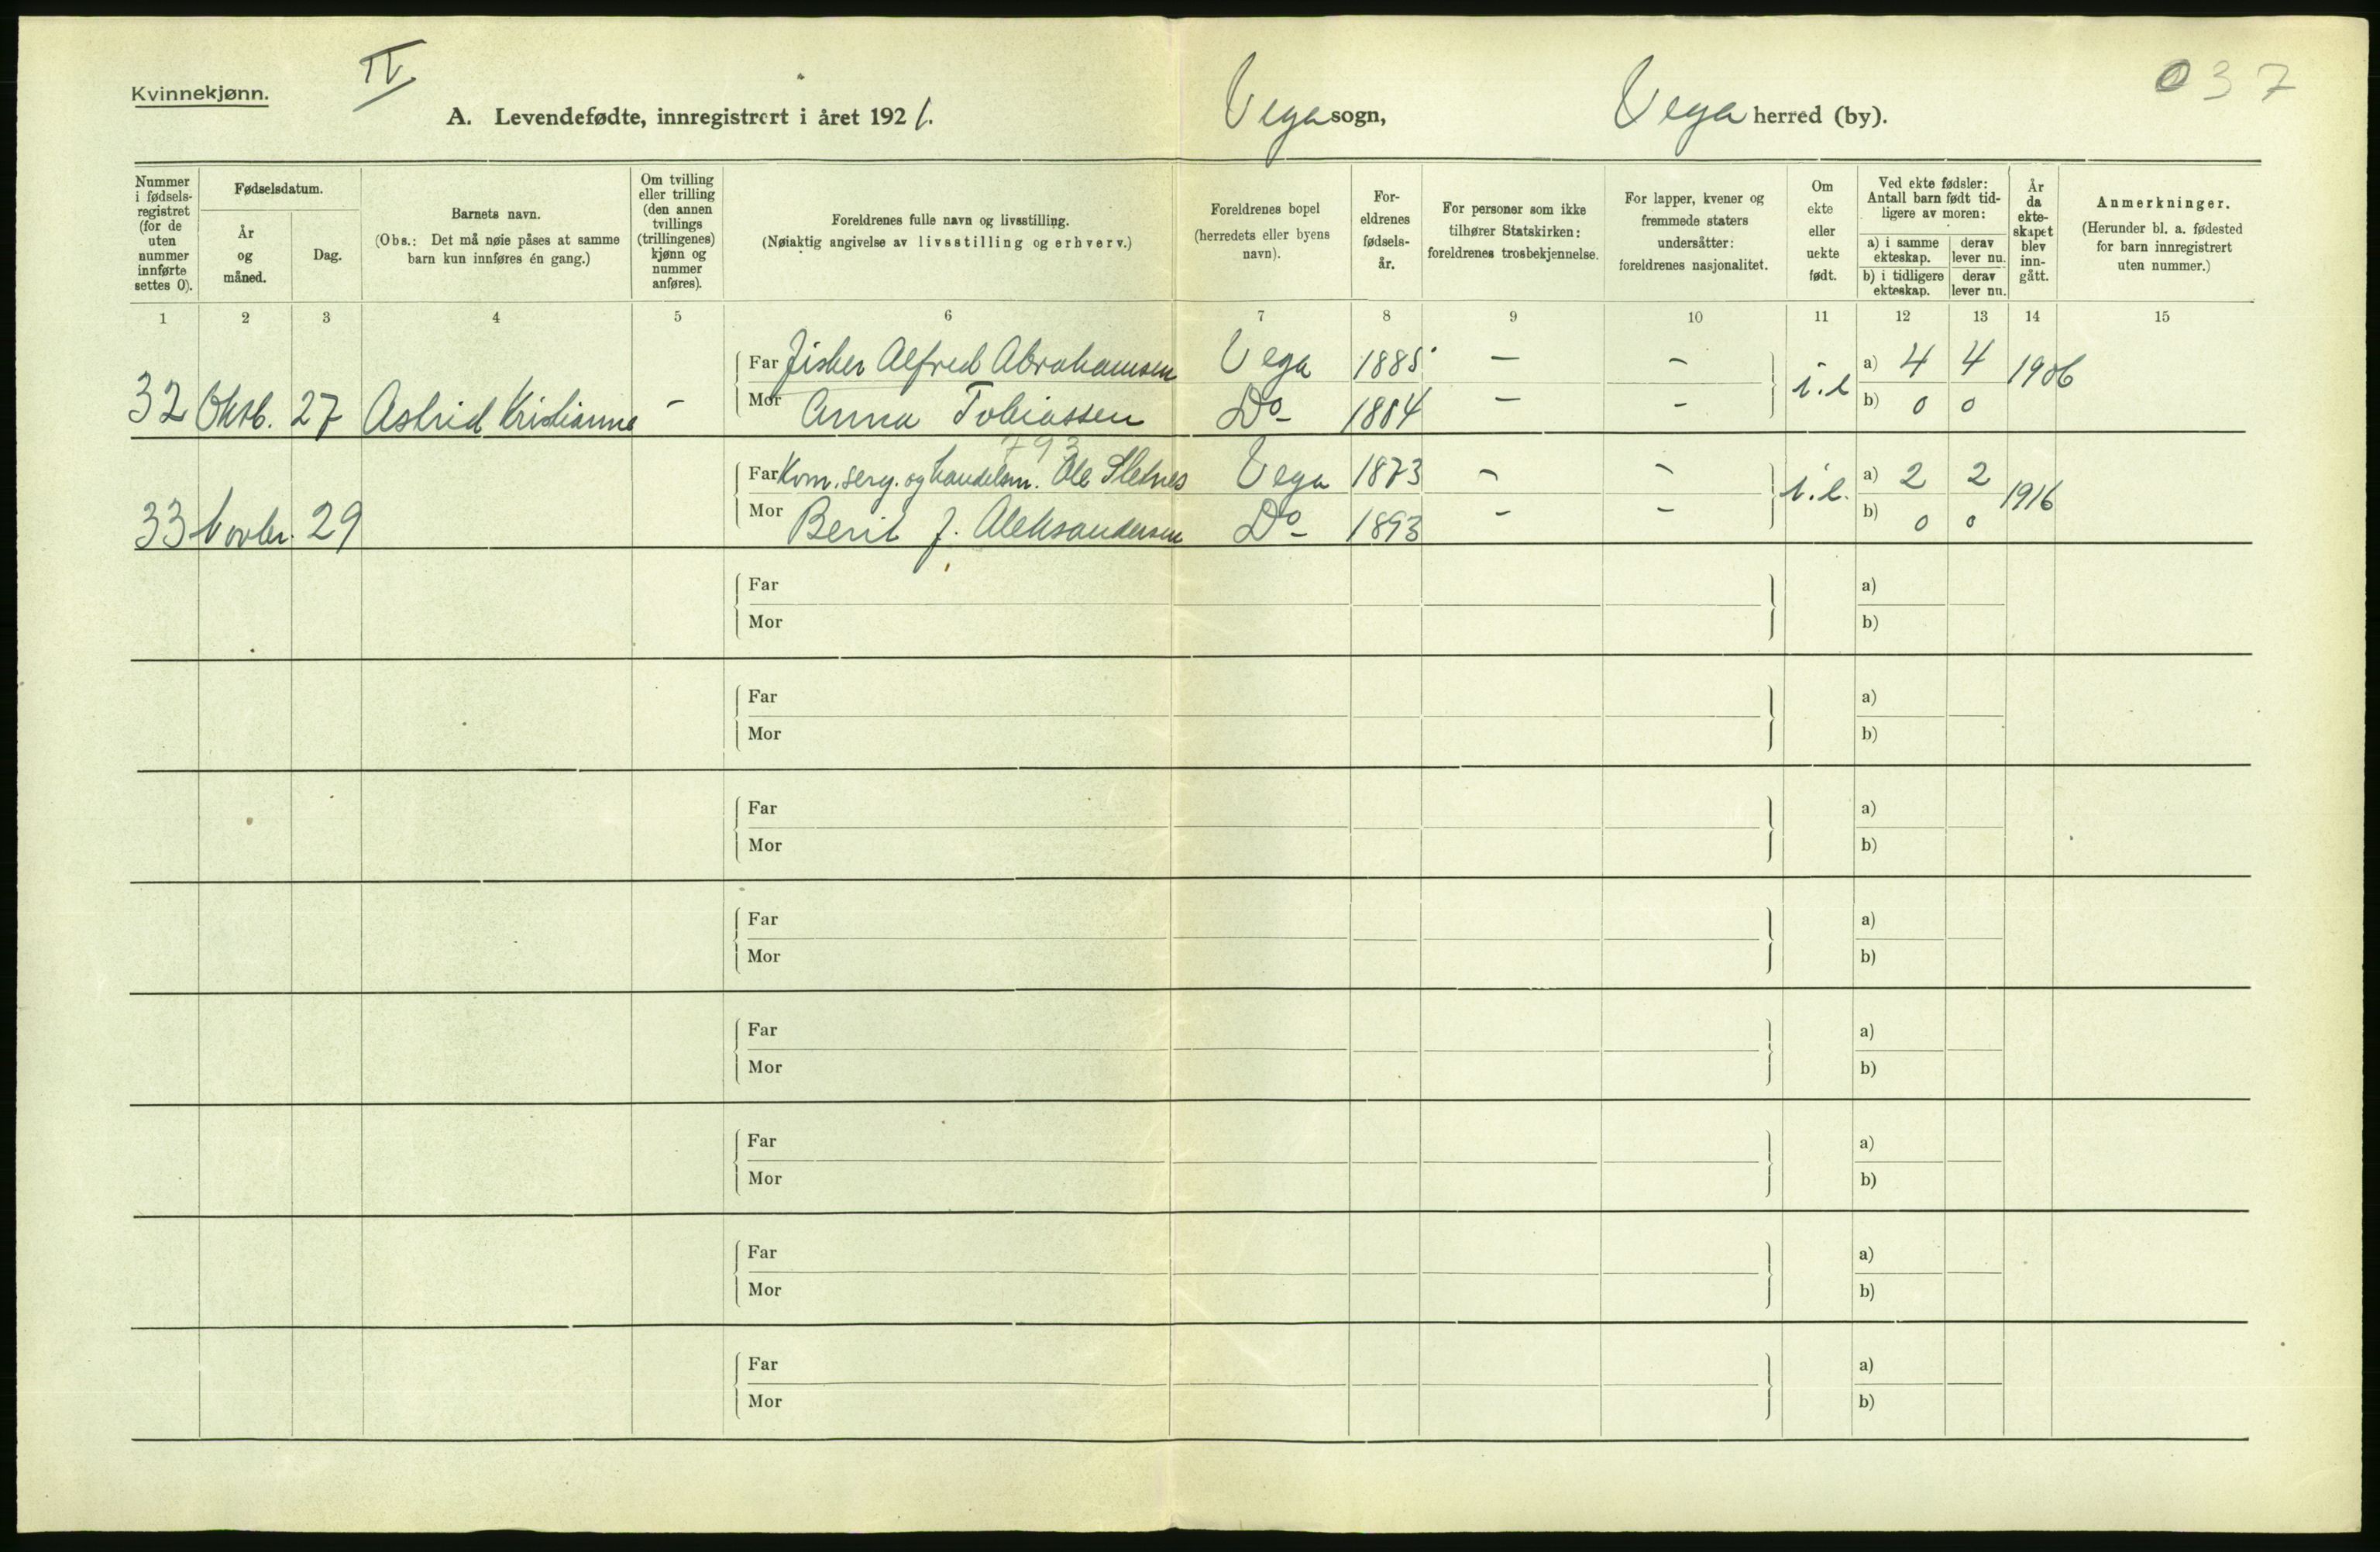 Kvinnekjønn.
IV.
037
A. Levendefødte, innregistrert i året 1921.
Vega sogn, Vega herred (by).
Nummer i fødselsregistret (for de uten nummer innførte settes 0).
Fødselsdatum.
År og måned.
Dag.
Barnets navn.
(Obs.: Det må nøie påses at samme barn kun innføres én gang.)
Om tvilling eller trilling (den annen tvillings (trillingenes) kjønn og nummer anføres).
Foreldrenes fulle navn og livsstilling.
(Nøiaktig angivelse av livsstilling og erhverv.)
Foreldrenes bopel (herredets eller byens navn).
Foreldrenes fødselsår.
For personer som ikke tilhører Statskirken: foreldrenes trosbekjennelse.
For lapper, kvener og fremmede staters undersåtter: foreldrenes nasjonalitet.
Om ekte eller uekte født.
Ved ekte fødsler: Antall barn født tidligere av moren:
a) i samme ekteskap. derav lever nu.
b) i tidligere ekteskap. derav lever nu.
År da ekteskapet blev inngått.
Anmerkninger.
(Herunder bl. a. fødested for barn innregistrert uten nummer.)
1 2 3 4 5 6 7 8 9 10 11 12 13 14 15
Far Fisker Alfred Abrahamsen Vega 1885 – – a) 4 4
32 Oktb. 27 Astrid Kristianne – i.e 1906
Mor Anna Tobiassen Do 1884 – – b) 0 0
793
Far Kom. serg. og handelsm. Ole Sletnes Vega 1873 – – a) 2 2
33 Novbr. 29 i.e. 1916
Mor Berit J. Aleksandersen Do 1893 – – b) 0 0
Far a)
Mor b)
Far a)
Mor b)
Far a)
Mor b)
Far a)
Mor b)
Far a)
Mor b)
Far a)
Mor b)
Far a)
Mor b)
Far a)
Mor b)